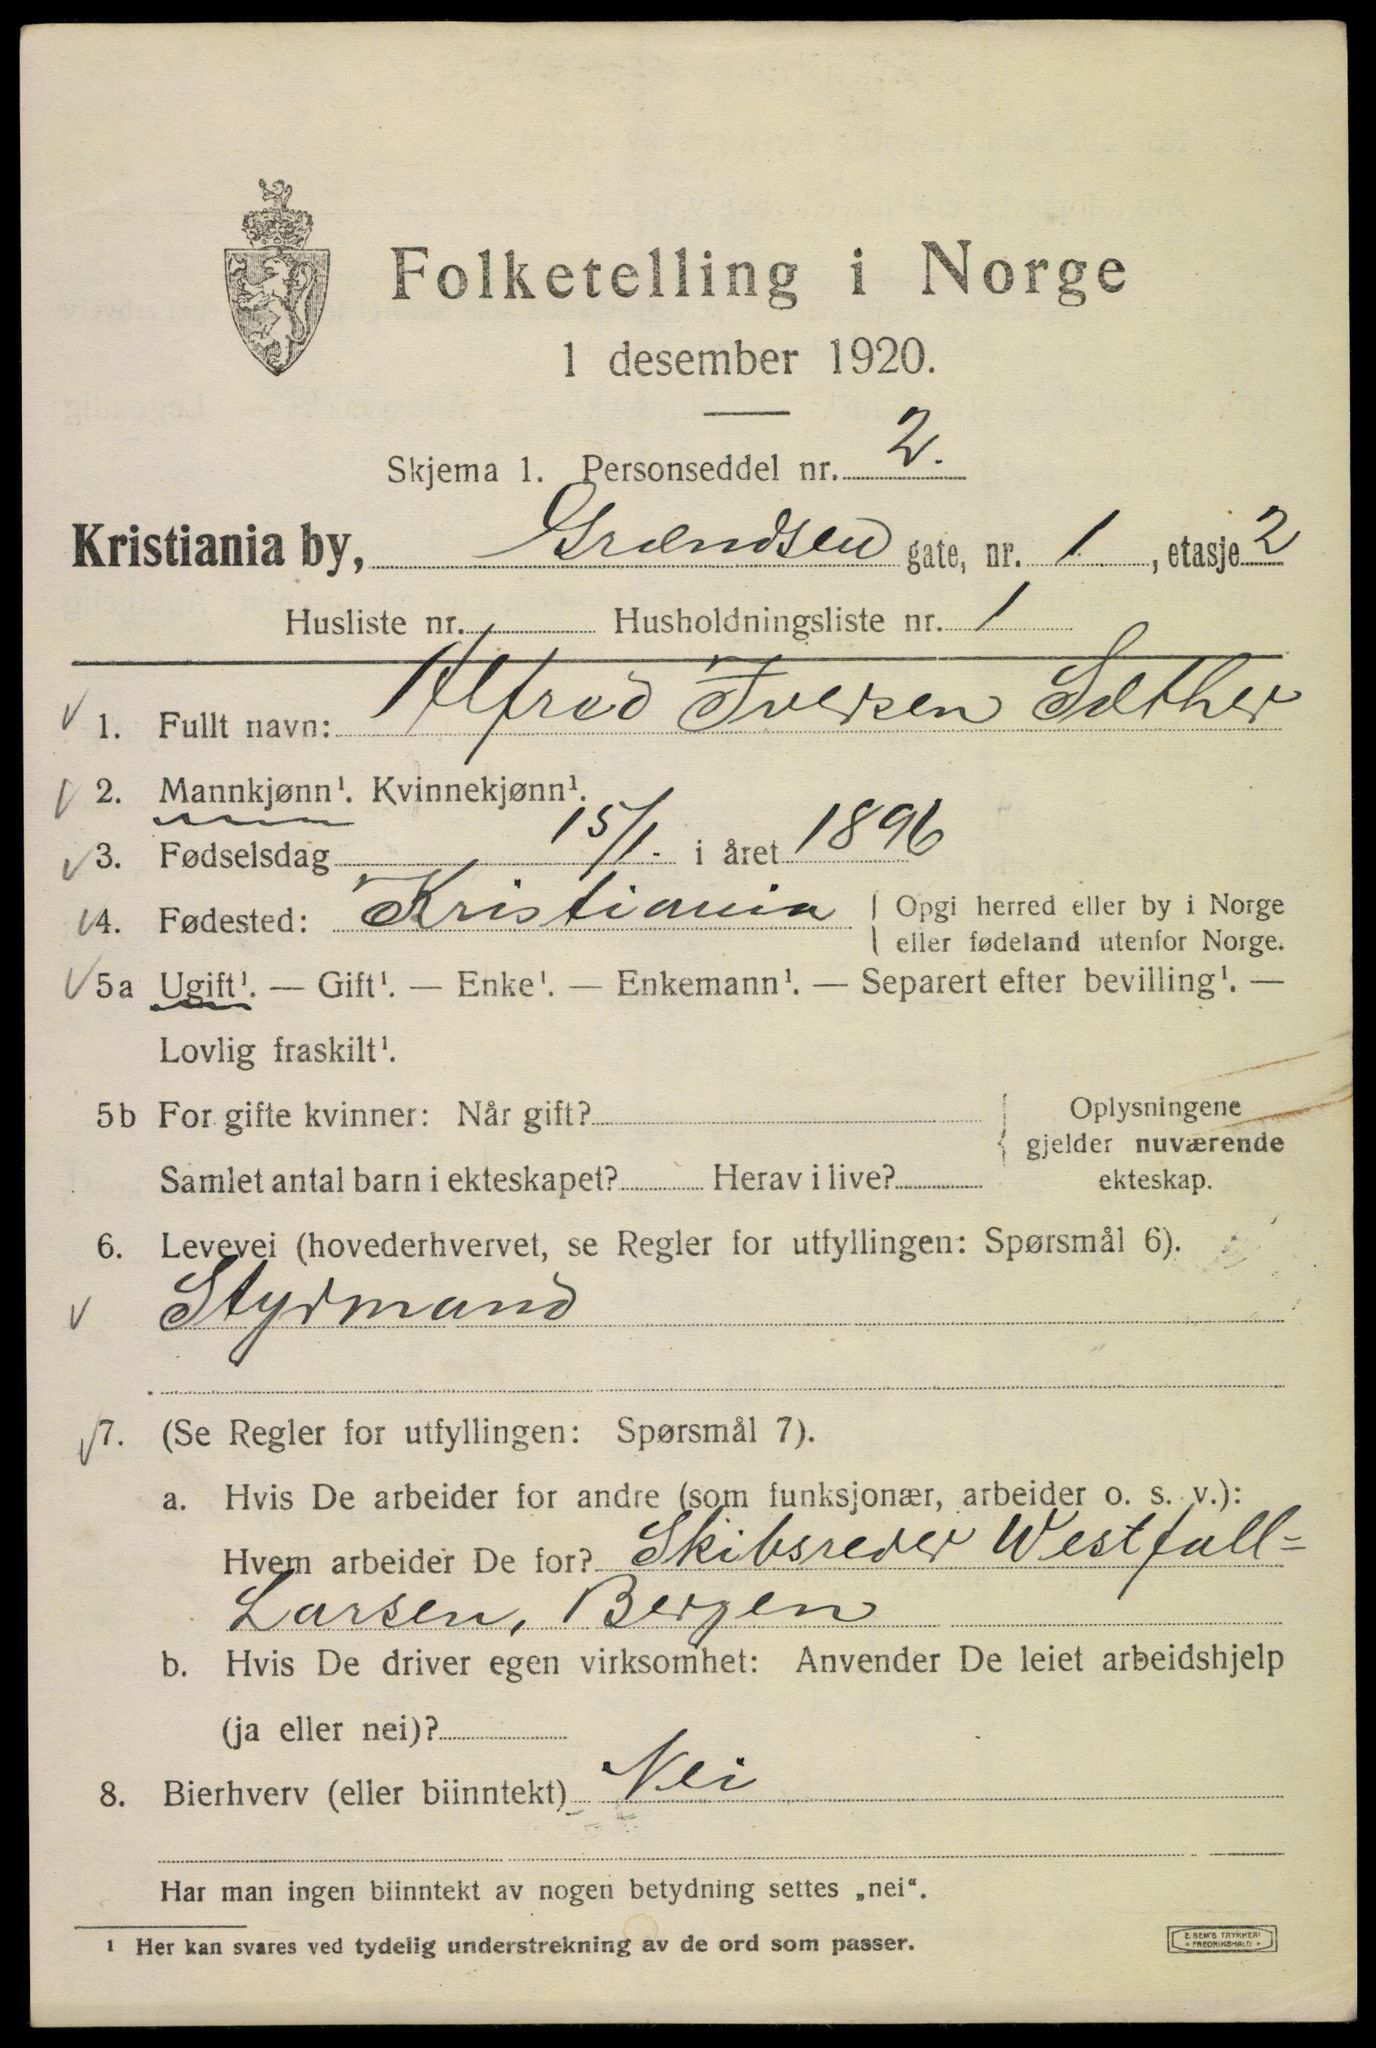 Folketelling i Norge
1 desember 1920.
Skjema 1. Personseddel nr. 2.
Kristiania by, Grændsen gate, nr. 1, etasje 2
Husliste nr. Husholdningsliste nr. 1
1. Fullt navn: Alfred Iversen Sæther
2. Mannkjønn¹. Kvinnekjønn¹.
3. Fødselsdag 15/1. i året 1896
4. Fødested: Kristiania { Opgi herred eller by i Norge
eller fødeland utenfor Norge.
5a Ugift¹. — Gift¹. — Enke¹. — Enkemann¹. — Separert efter bevilling¹. —
Lovlig fraskilt¹.
5b For gifte kvinner: Når gift? Oplysningene
gjelder nuværende
Samlet antal barn i ekteskapet? Herav i live? ekteskap.
6. Levevei (hovederhvervet, se Regler for utfyllingen: Spørsmål 6).
Styrmand
7. (Se Regler for utfyllingen: Spørsmål 7).
a. Hvis De arbeider for andre (som funksjonær, arbeider o. s. v.):
Hvem arbeider De for? Skibsreder Westfall=
Larsen, Bergen
b. Hvis De driver egen virksomhet: Anvender De leiet arbeidshjelp
(ja eller nei)?
8. Bierhverv (eller biinntekt) Nei
Har man ingen biinntekt av nogen betydning settes „nei“.
¹ Her kan svares ved tydelig understrekning av de ord som passer.
E. SEM'S TRYKKERI
• FREDRIKSHALD •